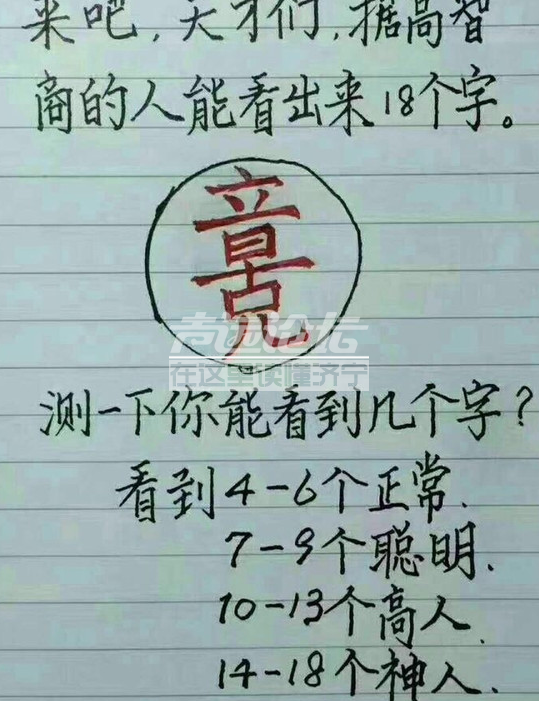 来吧,天才们,据高智
商的人能看出来18个字。
声远论坛
在这里读懂济宁
测一下你能看到几个字?
看到4-6个正常.
7-9个聪明.
10-13个高人.
14-18个神人.